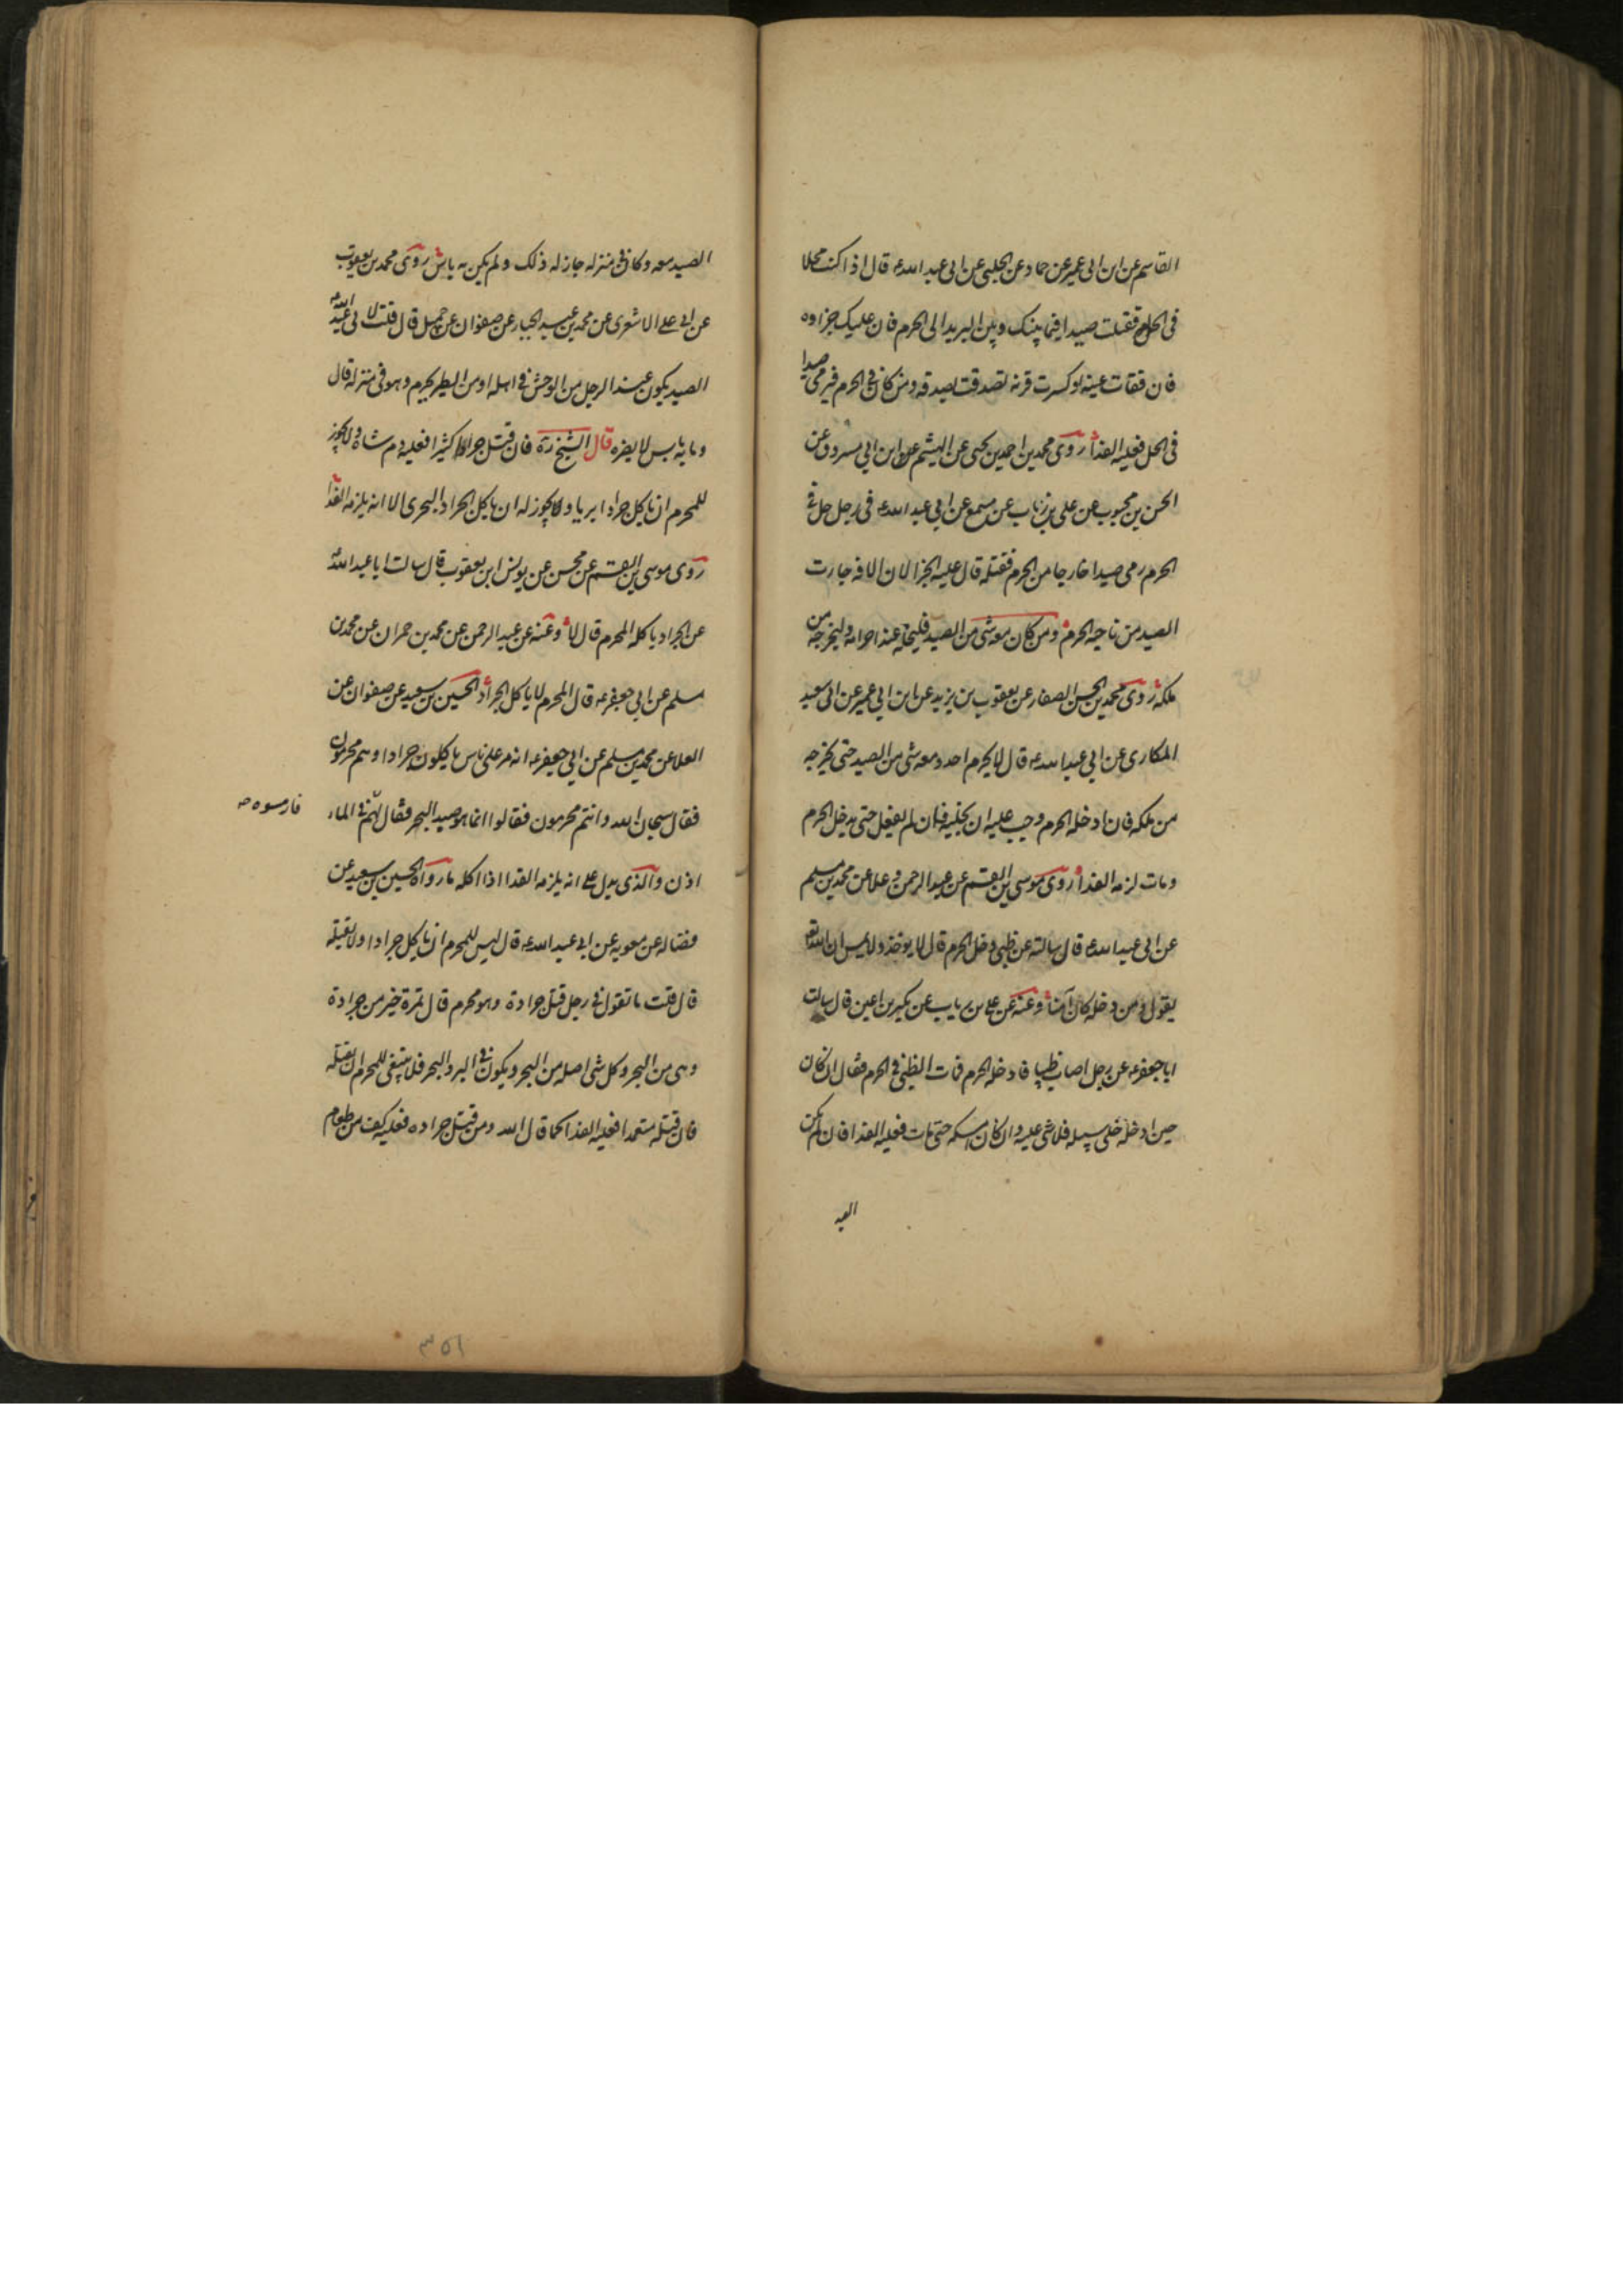 القاسم عن ابن ابى عمير عن حماد عن الحلبى عن ابى عبد الله ع قال اذا كنت محلا
فى الحل فقتلت صيدا فيما بينك وبين البريد الى الحرم فان عليك جزاوه
فان فقات عينه او كسرت قرنه تصدقت بصدقه ومن كان فى الحرم فيرمى صيدا
فى الحل فعليه الفدا روى محمد بن احمد بن يحيى عن الهيثم بن ابى مسروق عن
الحسن بن محبوب عن على بن رئاب عن مسمع عن ابى عبد الله ع فى رجل حل فى
الحرم رمى صيدا خارجا من الحرم فقتله قال عليه الجزا لان الافه جات
الصيد من ناحيه الحرم ومن كان معه شى من الصيد فليخله عند احرامه وليخرجه من
ملكه روى محمد بن الحسن الصفار عن يعقوب بن يزيد عن ابن ابى عمير عن ابى سعيد
المكارى عن ابى عبد الله ع قال لا يحرم احد ومعه شى من الصيد حتى يخرجه
من ملكه فان ادخله الحرم وجب عليه ان يخليه فان لم يفعل حتى يدخل الحرم
ومات لزمه الفدا روى موسى بن القسم عن عبد الرحمن عن علا عن محمد بن مسلم
عن ابى عبد الله ع قال سالته عن ظبى دخل الحرم قال لا يوخذ ولا يمس ان الله تع
يقول ومن دخله كان آمنا وعنه عن على بن رياب عن بكير بن اعين قال سالت
ابا جعفر ع عن رجل اصاب ظبيا فادخله الحرم فمات الظبى فى الحرم فقال ان كان
حين ادخله خلى سبيله فلا شى عليه وان كان امسكه حتى مات فعليه الفدا فان لم يكن
الصيد معه وكان فى منزله جاز له ذلك ولم يكن به باس روى محمد بن يعقوب
عن ابى على الاشعرى عن محمد بن عبد الجبار عن صفوان عن جميل قال قلت لابى عبد الله ع
الصيد يكون عند الرجل من الوحش فى اهله او من الطير يحرم وهو فى منزله قال
وما به باس لا يضره قال الشيخ ره فان قتل جرادا كثيرا فعليه دم شاه ولا يجوز
للمحرم ان ياكل جرادا بريا ولا يجوز له ان ياكل الجراد البحرى الا انه يلزمه الفدا
روى موسى بن القسم عن محسن عن يونس ابن يعقوب قال سالت ابا عبد الله ع
عن الجراد ياكله المحرم قال لا وعنه عن عبد الرحمن عن محمد بن حمران عن محمد بن
مسلم عن ابى جعفر ع قال المحرم لا ياكل الجراد الحسين بن سعيد عن صفوان عن
العلا عن محمد بن مسلم عن ابى جعفر ع انه مر على ناس ياكلون جرادا وهم محرمون
فقال سبحان الله وانتم محرمون فقالوا انما هو صيد البحر فقال لهم فى الماء
فارمسوه
اذن والذى يدل على انه يلزمه الفدا اذا اكله ما رواه الحسين بن سعيد عن
فضاله عن معويه عن ابى عبد الله ع قال ليس للمحرم ان ياكل جرادا ولا يقتله
قال قلت ما تقول فى رجل قتل جرادة وهو محرم قال تمرة خير من جرادة
وهى من البحر وكل شى اصله من البحر ويكون فى البر والبحر فلا ينبغى للمحرم ان يقتله
فان قتله متعمدا فعليه الفدا كما قال الله ومن قتل جراده فعليه كف من طعام
٣٥١